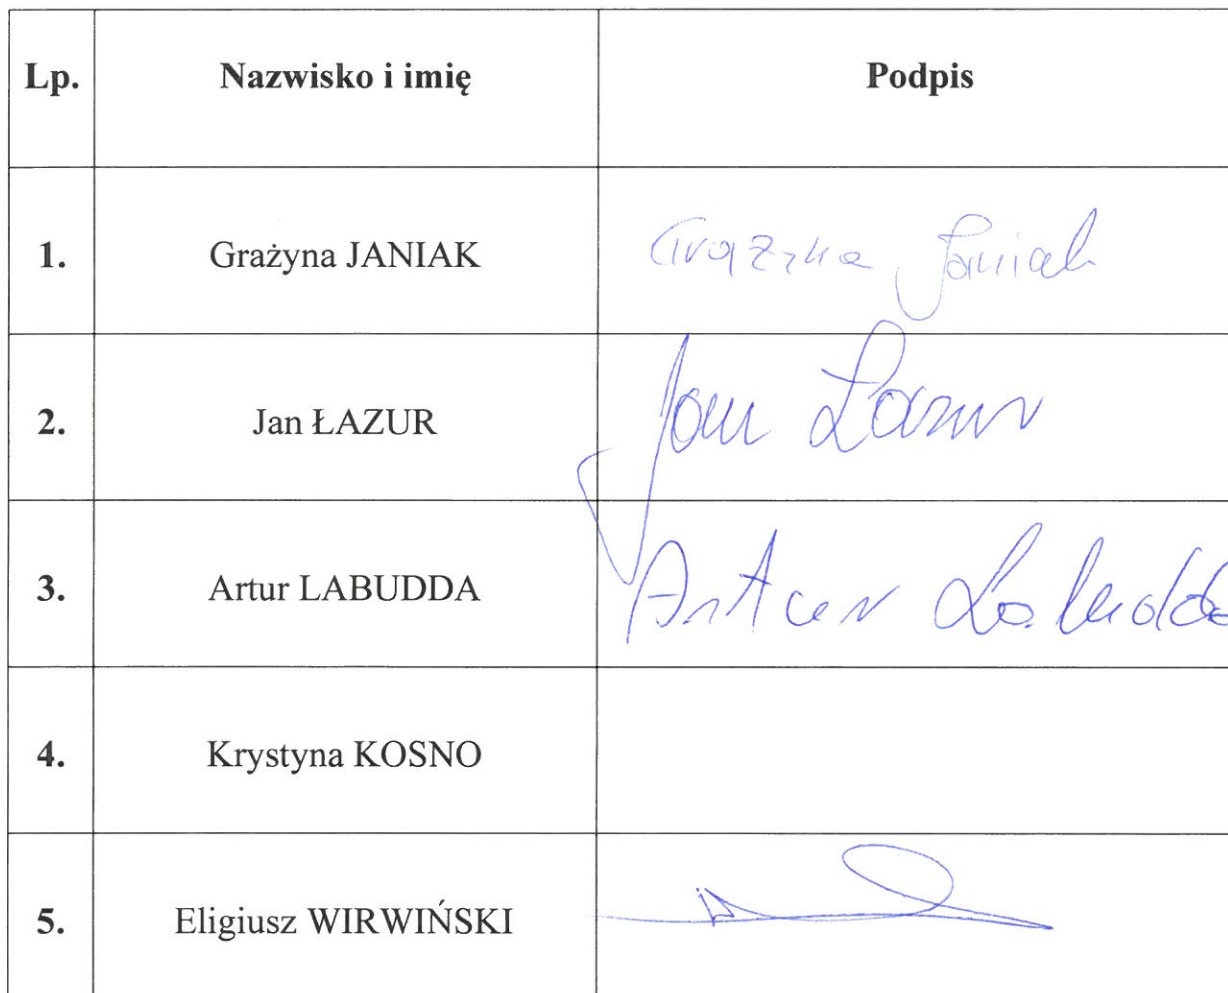 Lp. Nazwisko i imię Podpis
1. Grażyna JANIAK Grażyna Janiak
2. Jan ŁAZUR Jan Łazur
3. Artur LABUDDA Artur Labudda
4. Krystyna KOSNO
5. Eligiusz WIRWIŃSKI